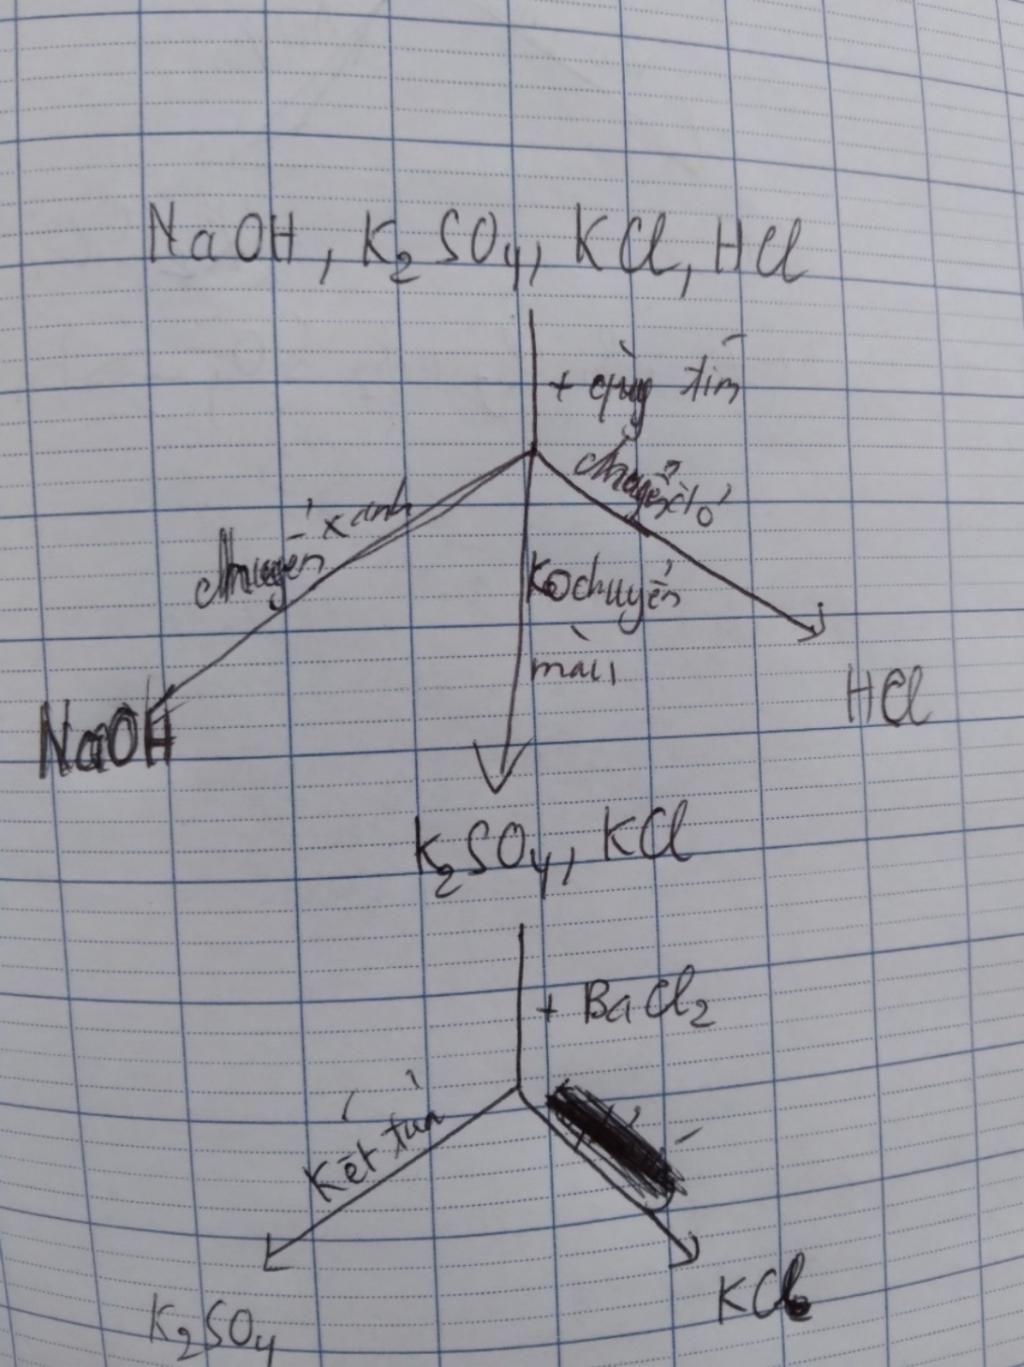 NaOH, K2SO4, KCl, HCl
+ quỳ tím
chuyển đỏ
chuyển xanh
Ko chuyển
màu
HCl
NaOH
K2SO4, KCl
+ BaCl2
Kết tủa
K2SO4
KCl